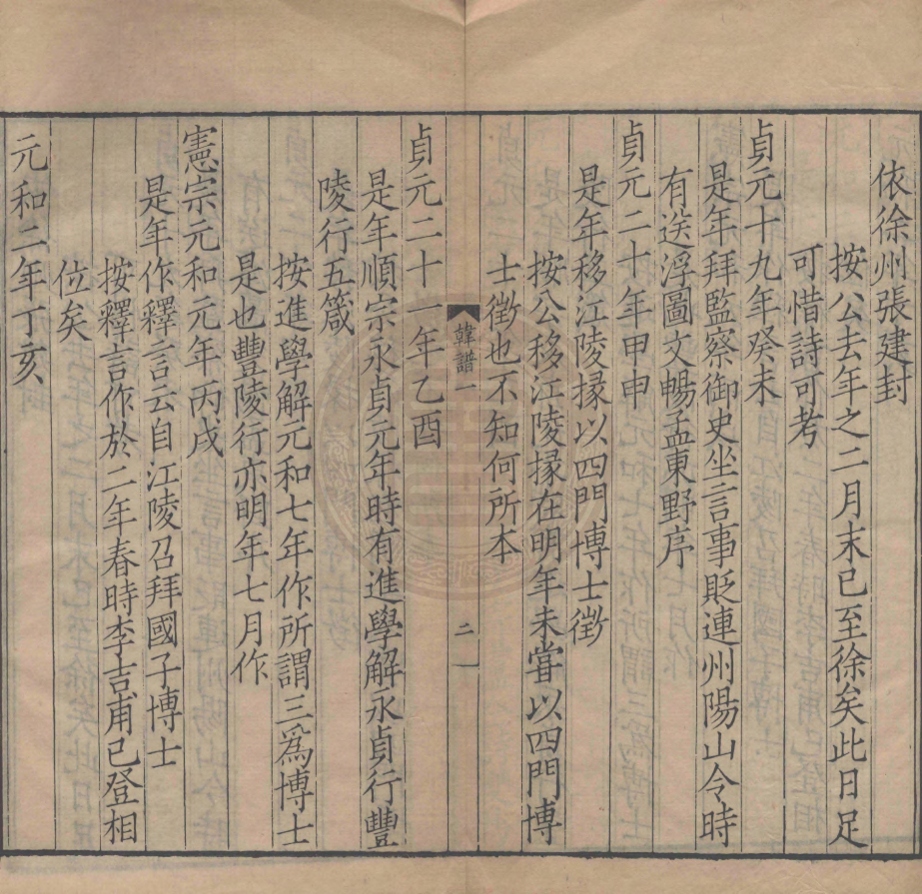 依徐州張建封
按公去年之二月末已至徐矣此日足
可惜詩可考
貞元十九年癸未
是年拜監察御史坐言事貶連州陽山令時
有送浮圖文暢孟東野序
貞元二十年甲申
是年移江陵掾以四門博士徵
按公移江陵掾在明年未嘗以四門博
士徵也不知何所本
韓譜一
二
貞元二十一年乙酉
是年順宗永貞元年時有進學解永貞行豐
陵行五箴
按進學解元和七年作所謂三爲博士
是也豐陵行亦明年七月作
憲宗元和元年丙戌
是年作釋言云自江陵召拜國子博士
按釋言作於二年春時李吉甫已登相
位矣
元和二年丁亥